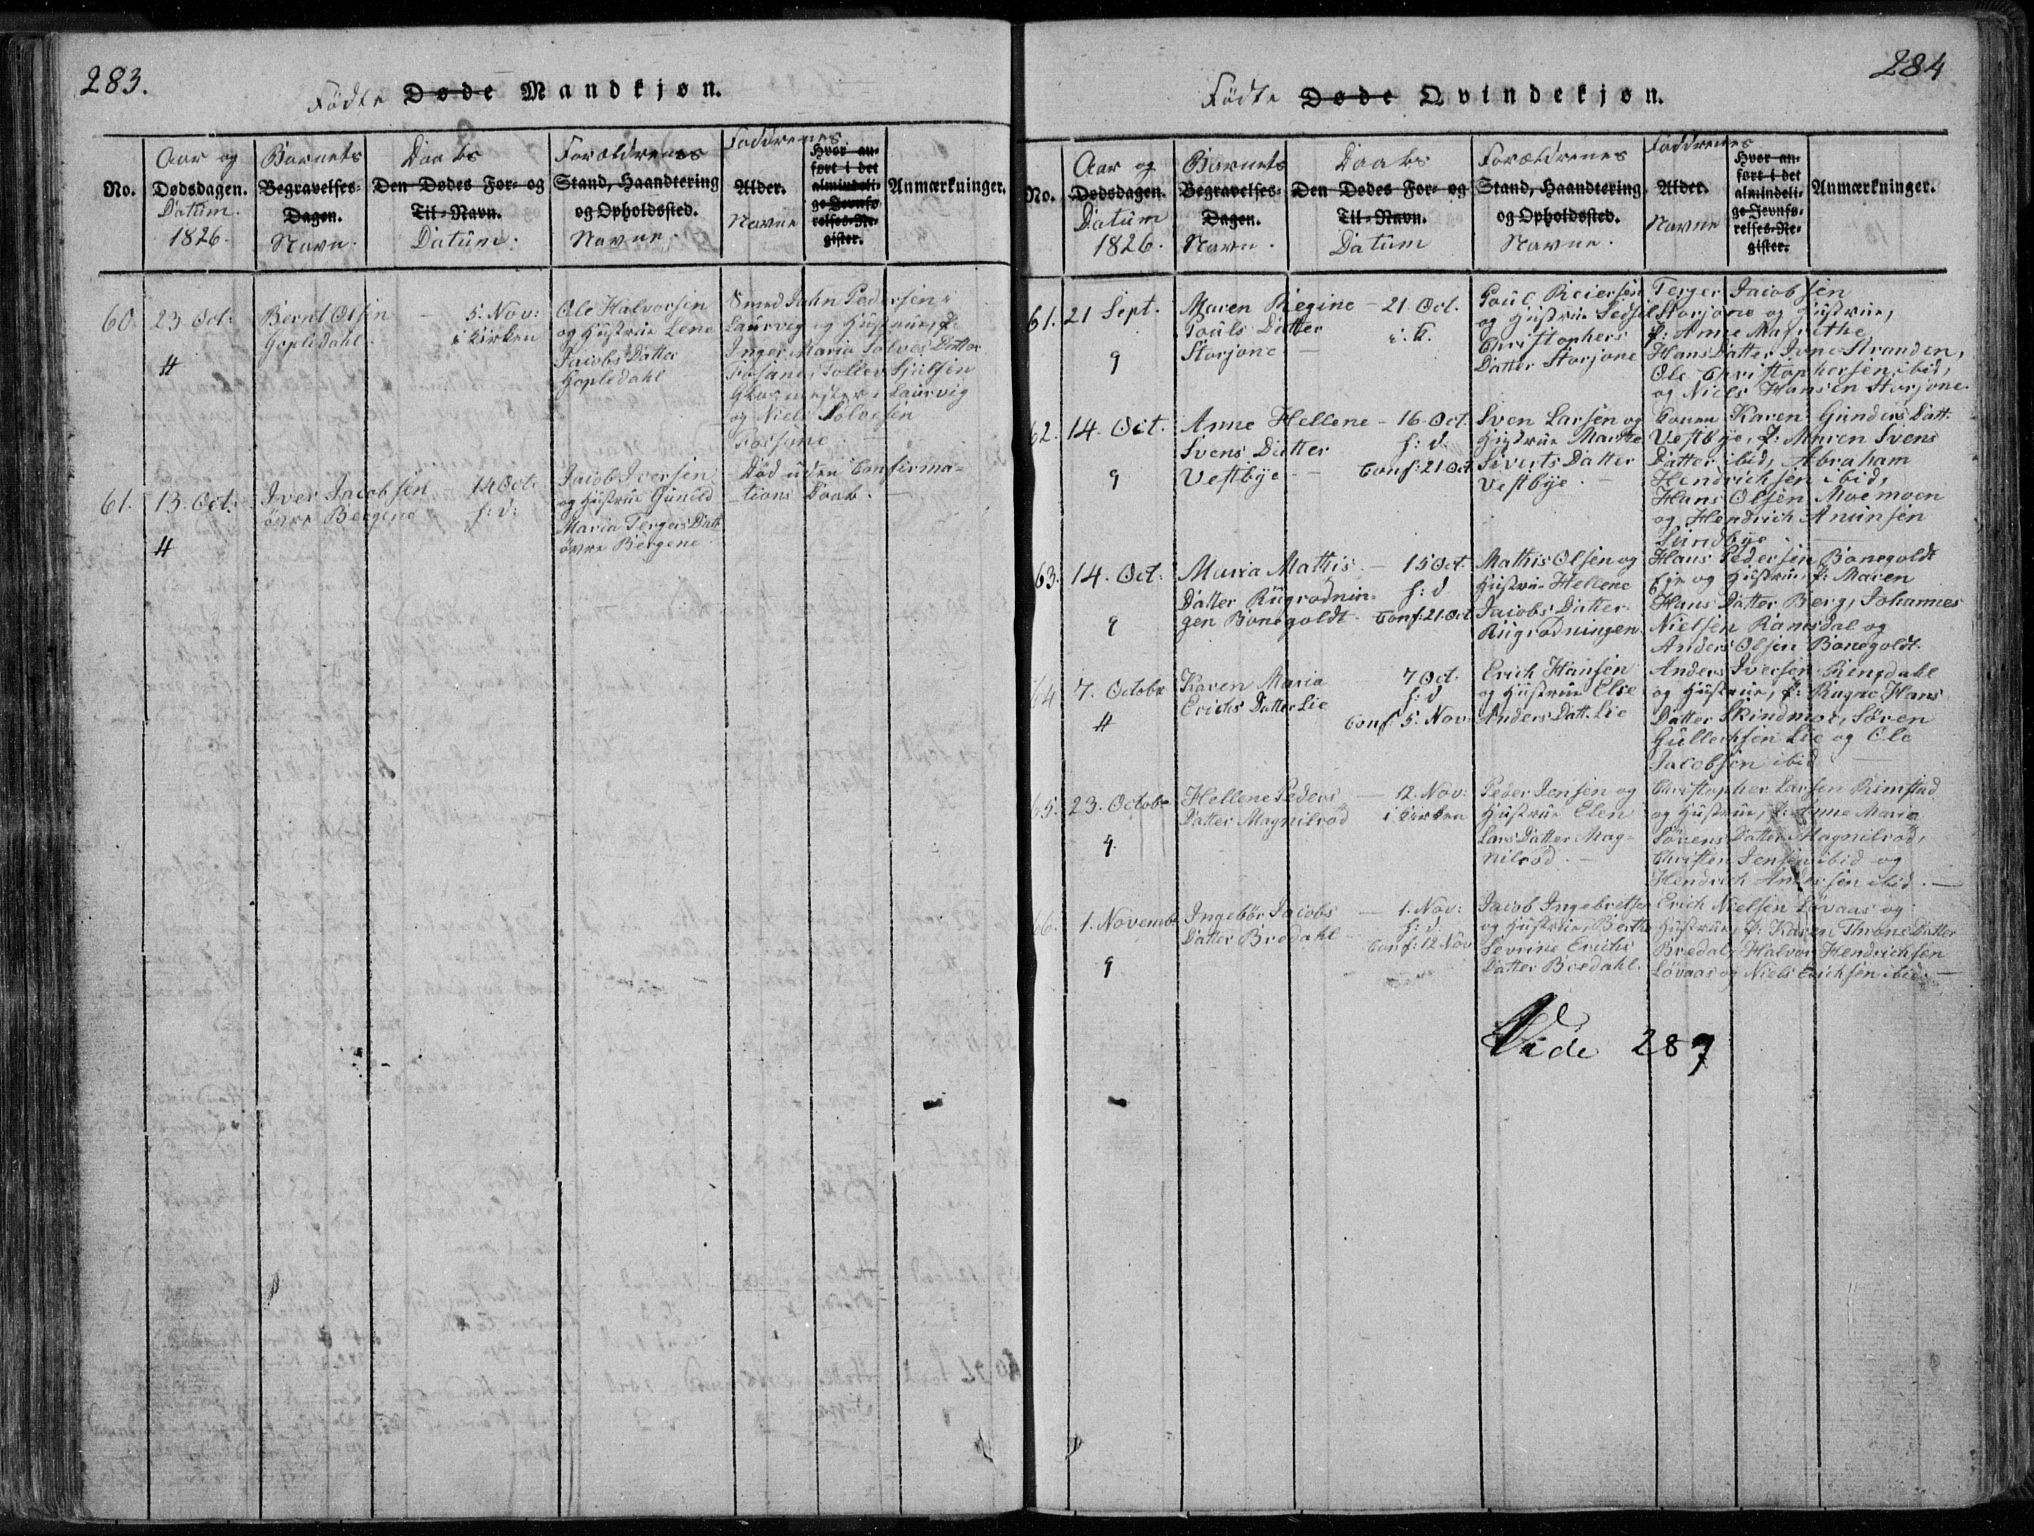 283.
Fødte Døde Mandkjøn.
No.
Aar og
Dødsdagen.
Datum.
1826.
Barnets
Begravelses-
Dagen.
Navn.
Daabs
Den Dødes For- og
Til-Navn.
Datum.
Forældrenes
Stand, Haandtering
og Opholdssted.
Navne.
Faddrenes
Alder.
Navne
Hvor an-
ført i det
almindeli-
ge Jevnfø-
relses-Re-
gister.
Anmærkninger.
60.
23 Oct:
Bernt Olsen
Gopledahl.
5. Nov:
i Kirken
Ole Halvorsen
og Hustrue Lene
Jacobs Datter
Gopledahl
Smed John Pedersen
Laurvig og Hustrue, J:
Inger Maria Solves Datter
Fosane, Tollev
Glasmester i Laurvig
og Niels Solvesen
Fossane.
61.
13. Oct:
Iver Jacobsen
øvre Bergene
14 Oct:
h: d:
Jacob Iversen
og Hustrue Gunild
Maria Tergers Datt:
øvre Bergene.
Død uden Confirma-
tions Daab.
284
Fødte Døde Qvindekjøn.
No.
Aar og
Dødsdagen.
Datum
1826.
Barnets
Begravelses-
Dagen.
Navn.
Daabs
Den Dødes For- og
Til-Navn.
Datum
Forældrenes
Stand, Haandtering
og Opholdssted.
Navne.
Faddrenes
Alder.
Navne
Hvor an-
ført i det
almindeli-
ge Jevnfø-
relses-Re-
gister.
Anmærkninger.
61.
21 Sept.
9
Maren Regine
Pouls Datter
Storjone
21. Oct.
i. K.
Poul Reiersen
og Hustrue Sidsel
Christophers
Datter Storjone
Terger Jacobsen
Storjone og Hustrue,
J: Anne Margrethe
Hans Datter Stranden,
Ole Christophersen ibid,
og Niels Hansen Storjone.
62.
14. Oct.
9
Anne Hellene
Svens Datter
Vestbye
16. Oct.
h: d.
Conf: 21 Oct
Sven Larsen og
Hustrue Marthe
Siverts Datter
Vestbye.
Karen Gunders Datt:
Vestbye, J: Maren Svens
Datter ibid, Abraham
Hendrichsen ibid,
Hans Olsen Moemoen
og Hendrich Anunsen
Sundbye
63.
14. Oct:
9
Maria Mathis
Datter Rugrodnin-
gen Bonegoldt
15 Oct.
h: d
Conf: 21. Oct
Mathis Olsen og
Hustrue Hellene
Jacobs Datter
Rugrodningen.
Hans Pedersen Bonegoldt
Eje og Hustrue, J: Maren
Hans Datter Berg, Johannes
Nielsen Ramsdal og
Anders Olsen Bonegoldt.
64
7. Octobr
Karen Maria
Erichs Datter Lie
7 Oct.
h: d
Conf 5. Nov:
Erich Hansen
og Hustrue Else
Anders Datt. Lie
Anders Iversen Ringdahl
og Hustrue, J: Hans
Datter Skindmoe, Søren
Gullichsen Lie og Ole
Jacobsen ibid
65.
23. Octobr
9.
Hellene Peders
Datter Magnilrød
12. Nov:
i Kirken
Peder Jensen og
Hustrue Elen
Lars Datter Mag-
nilrød.
Christopher Larsen Rimstad
og Hustrue, J: Anne Maria
Sørens Datter Magnilrød,
Christen Jensen ibid og
Hendrich Andersen ibid.
66.
1. Novemb:
9
Ingebør Jacobs
Datter Bredahl
1. Nov:
h: d.
Conf: 12 Nov
Jacob Ingebretsen
og Hustrue, Berthe
Severine Erichs
Datter Bredahl.
Erich Nielsen Løvaas og
Hustrue, J: Karen Throns Datter
Bredal, Halvor Hendrichsen
Løvaas og Niels Erichsen ibid.
Vide 287